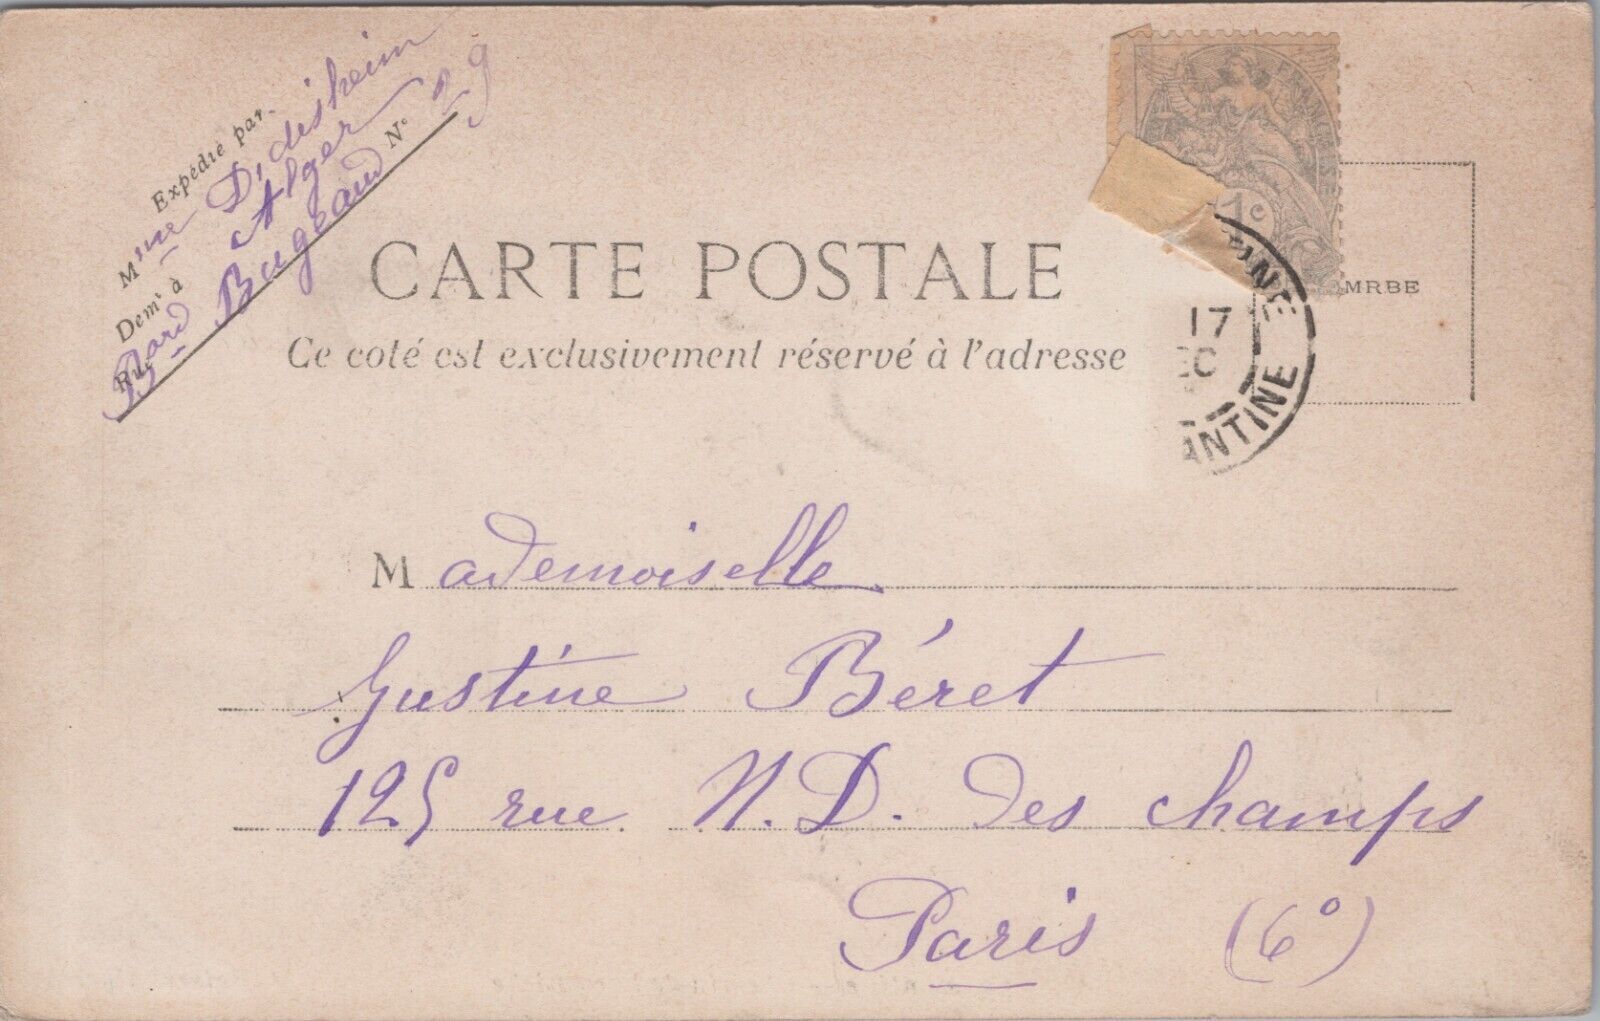 Expédié par
Mme Didisheim
Dem.t à Alger
Rue Bard Bugeaud No 29
FRANÇAISE
1c
MRBE
CARTE POSTALE
Ce coté est exclusivement réservé à l'adresse
17
EC
ANTINE
Mademoiselle
Gustine Béret
125 rue N. D. des champs
Paris (6°)